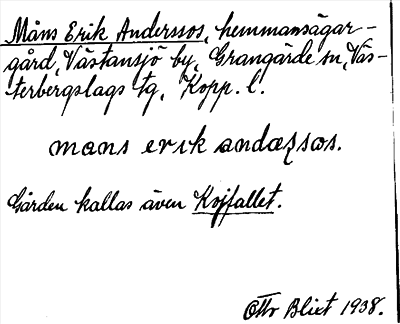 Måns Erik Anderssos, hemmansägar-
gård, Västansjö by, Grangärde sn, Väs-
terbergslags tg, Kopp. l.
mans erik andæʂsωs.
Gården kallas även Kojfallet.
Otto Blixt 1938.